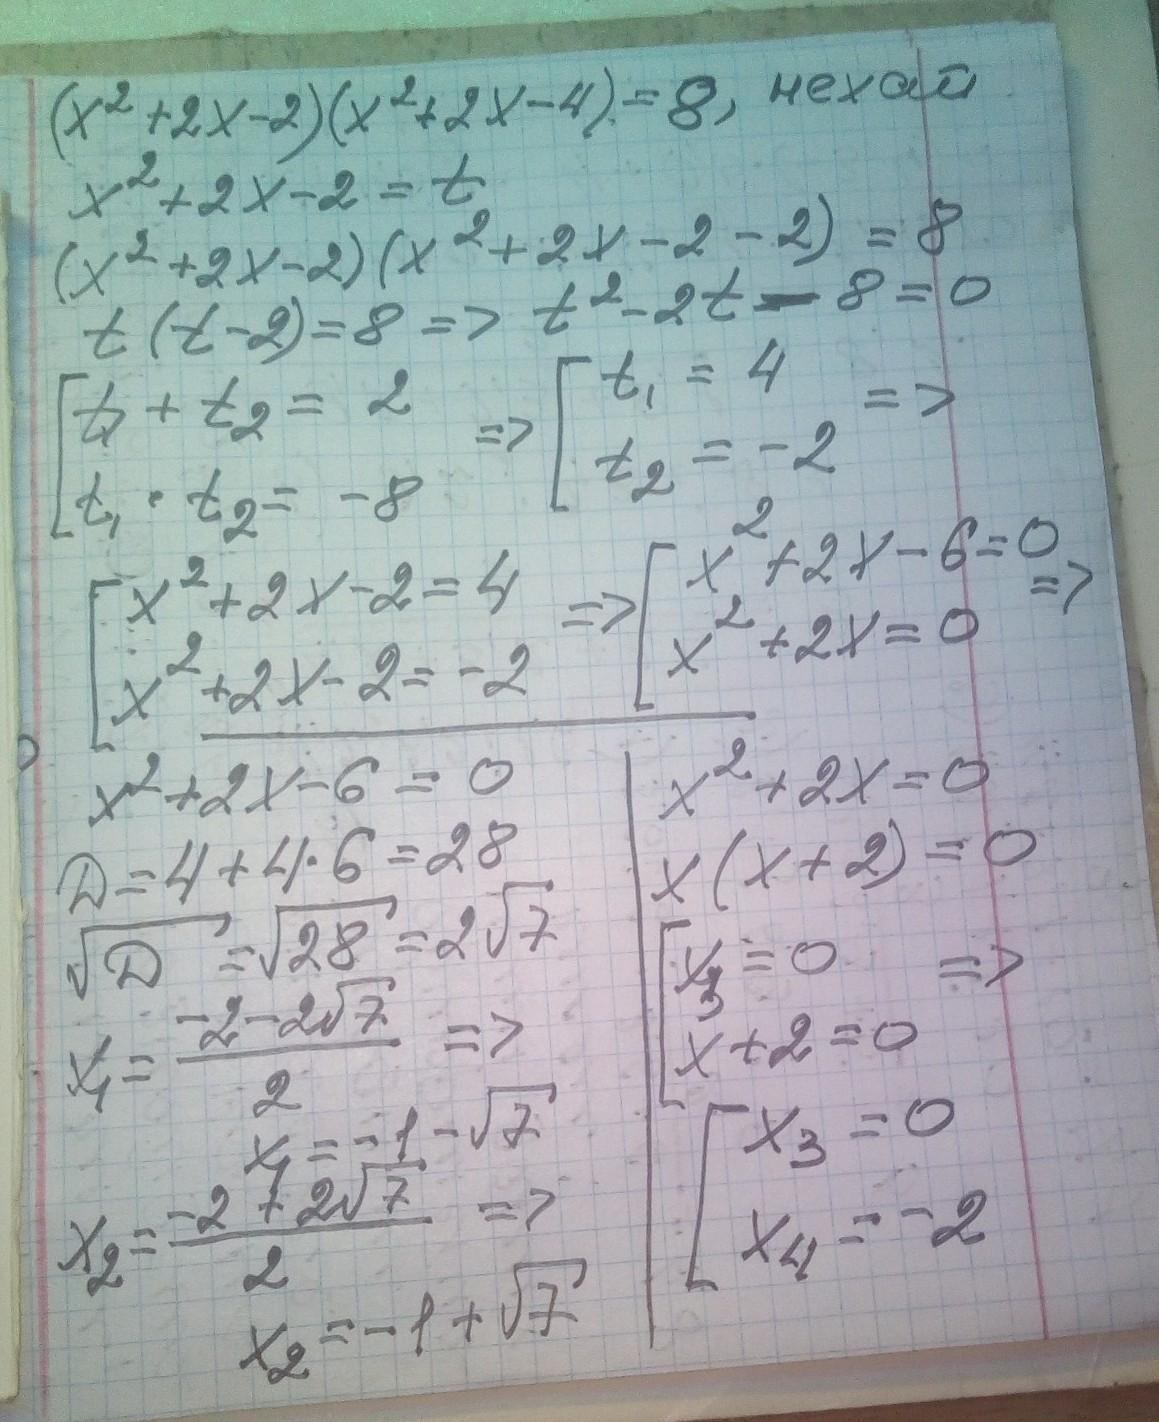 (x²+2x-2)(x²+2x-4)=8, нехай
x²+2x-2=t
(x²+2x-2)(x²+2x-2-2)=8
t(t-2)=8 => t²-2t-8=0
[t₁+t₂=2
t₁·t₂=-8
=> [t₁=4
t₂=-2 =>
[x²+2x-2=4
x²+2x-2=-2
=> [x²+2x-6=0
x²+2x=0 =>
x²+2x-6=0
D=4+4·6=28
√D=√28=2√7
x₁=(-2-2√7)/2 =>
x₁=-1-√7
x₂=(-2+2√7)/2 =>
x₂=-1+√7
x²+2x=0
x(x+2)=0
[x₃=0
x+2=0 =>
[x₃=0
x₄=-2